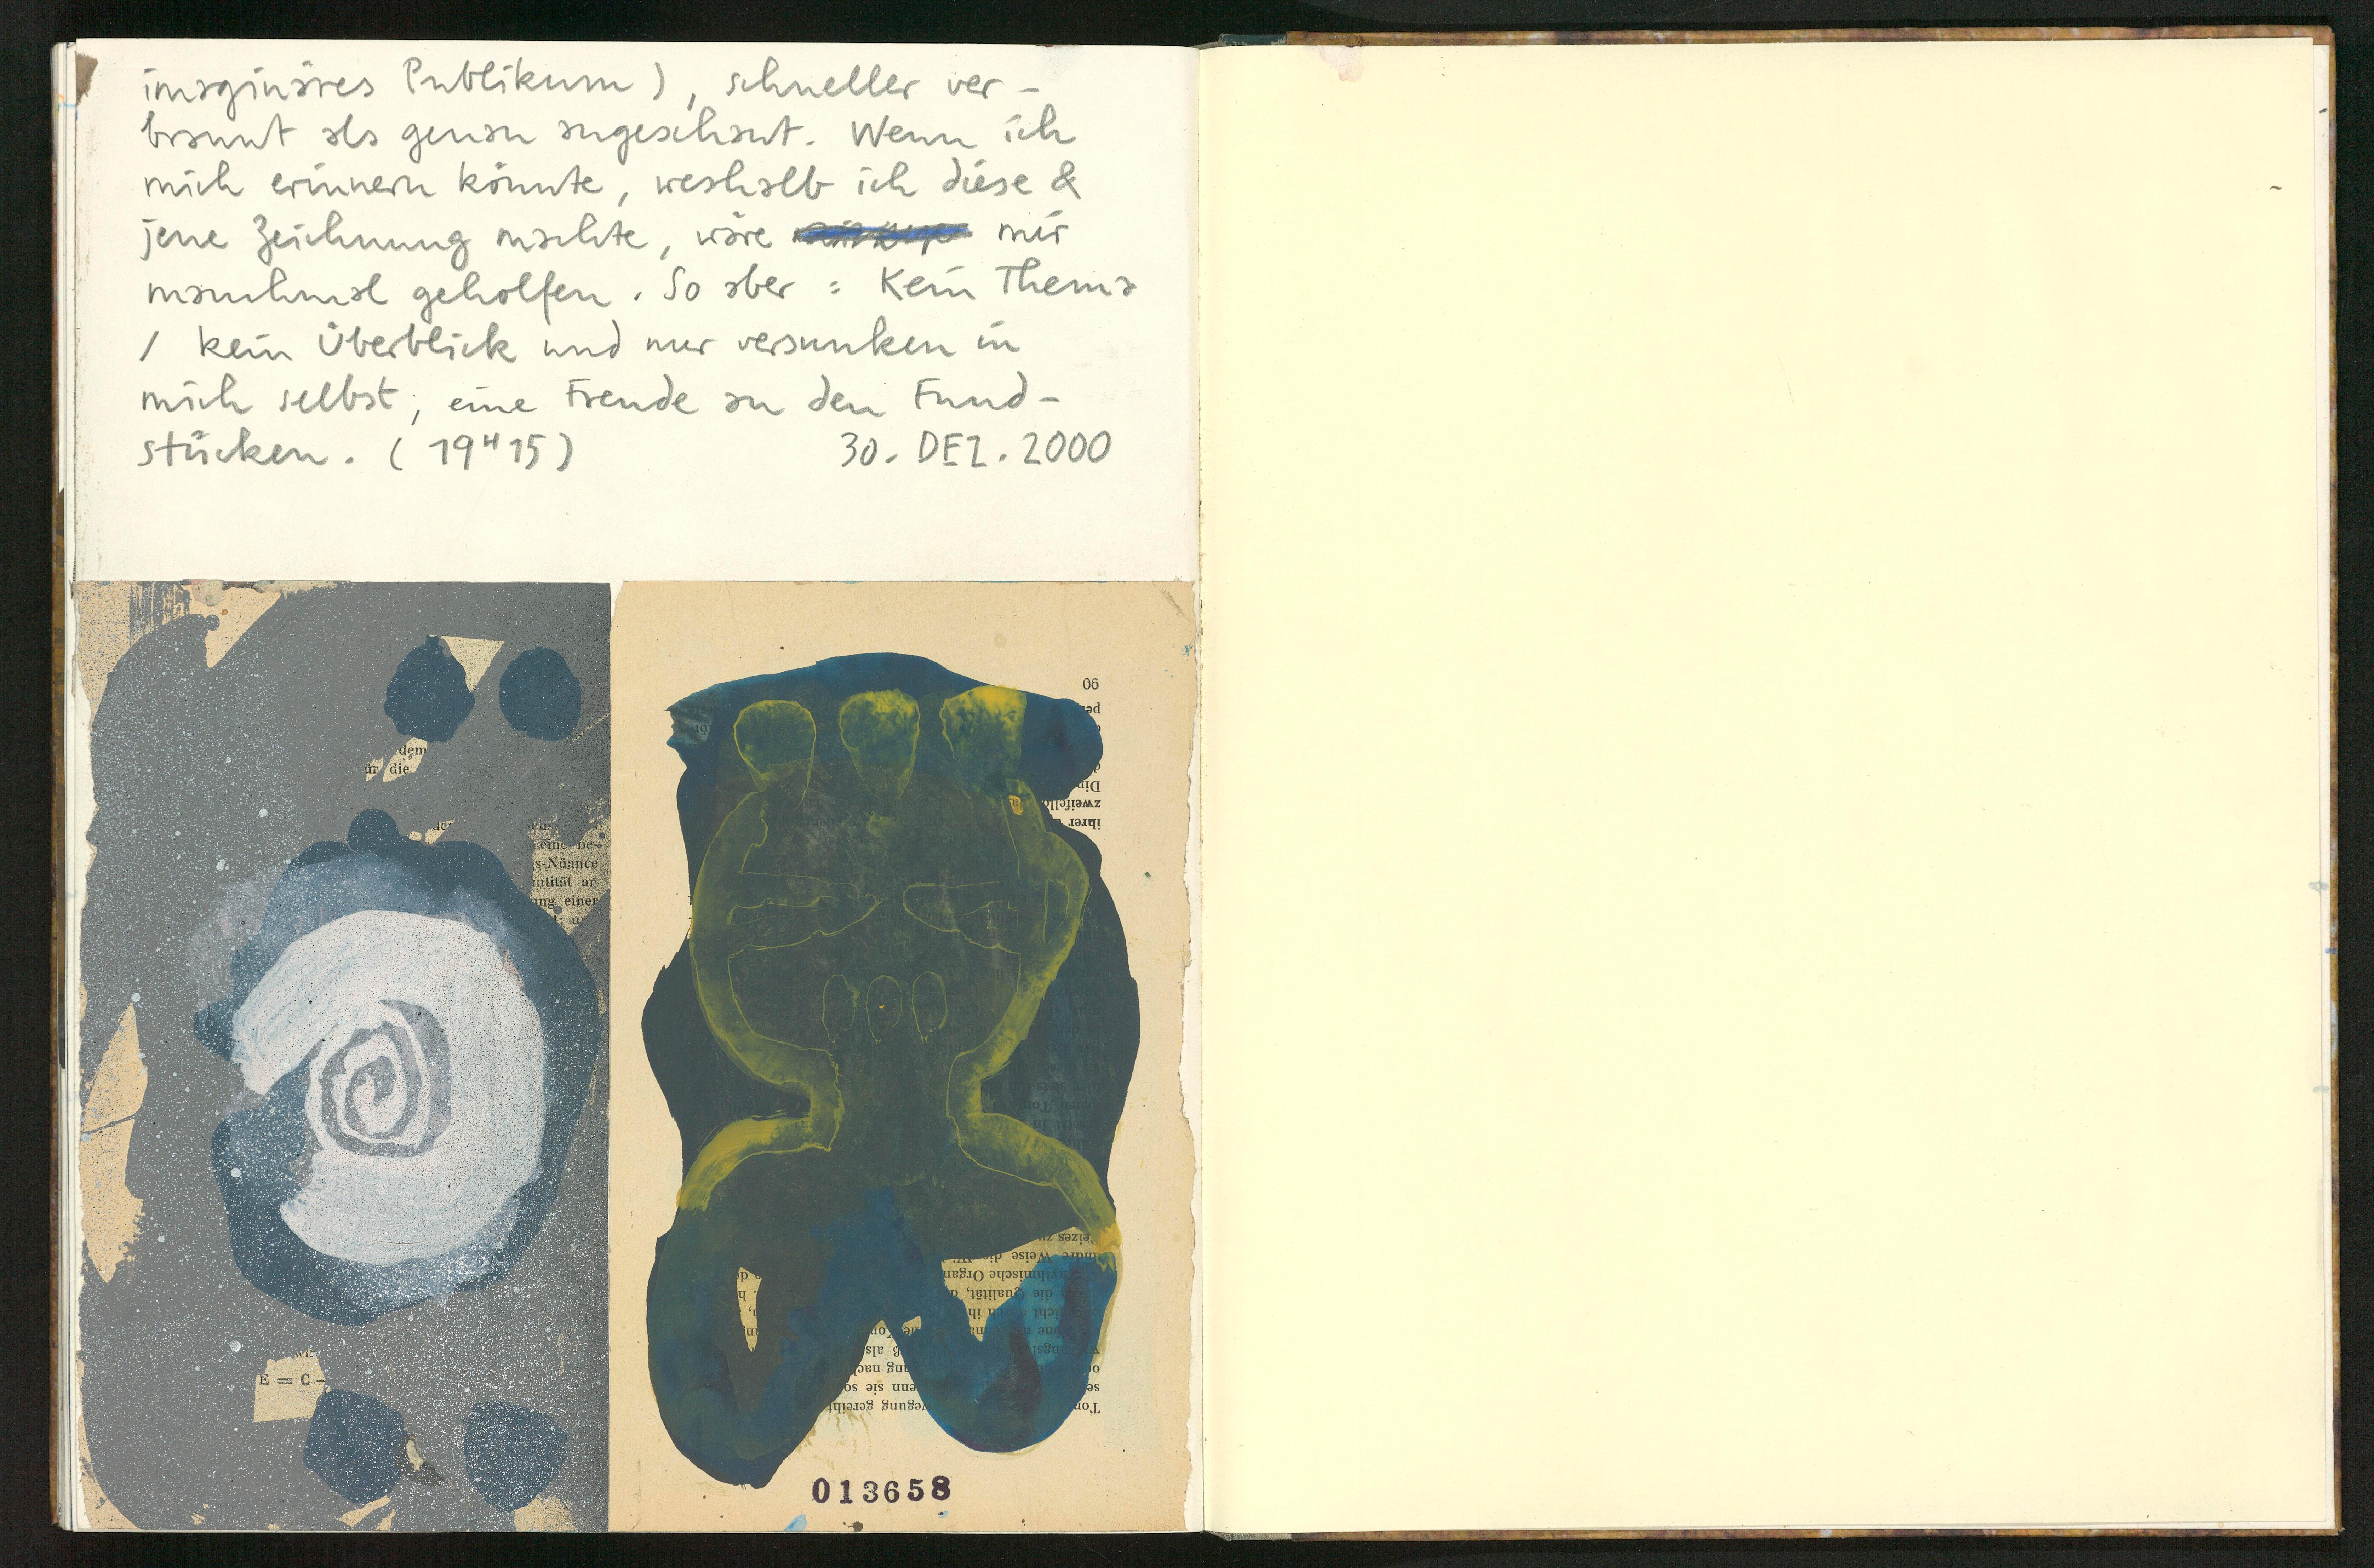 imaginäres Publikum), schneller ver-
brannt als genau angeschaut. Wenn ich
mich erinnern könnte, weshalb ich diese &
jene Zeichnung machte, wäre mir
manchmal geholfen. So aber : Kein Thema
/ kein Überblick und nur versunken in
mich selbst, eine Freude an den Fund-
stücken. (19H15) 30. DEZ. 2000
dem
für die
der
eine be-
s-Nüance
ntität an
ung einer
E = C -
90
zweifello
ihrer
Weise die
Organ
die Qualität, d
nach
enn sie so
wegung gereiht
Ton
013658